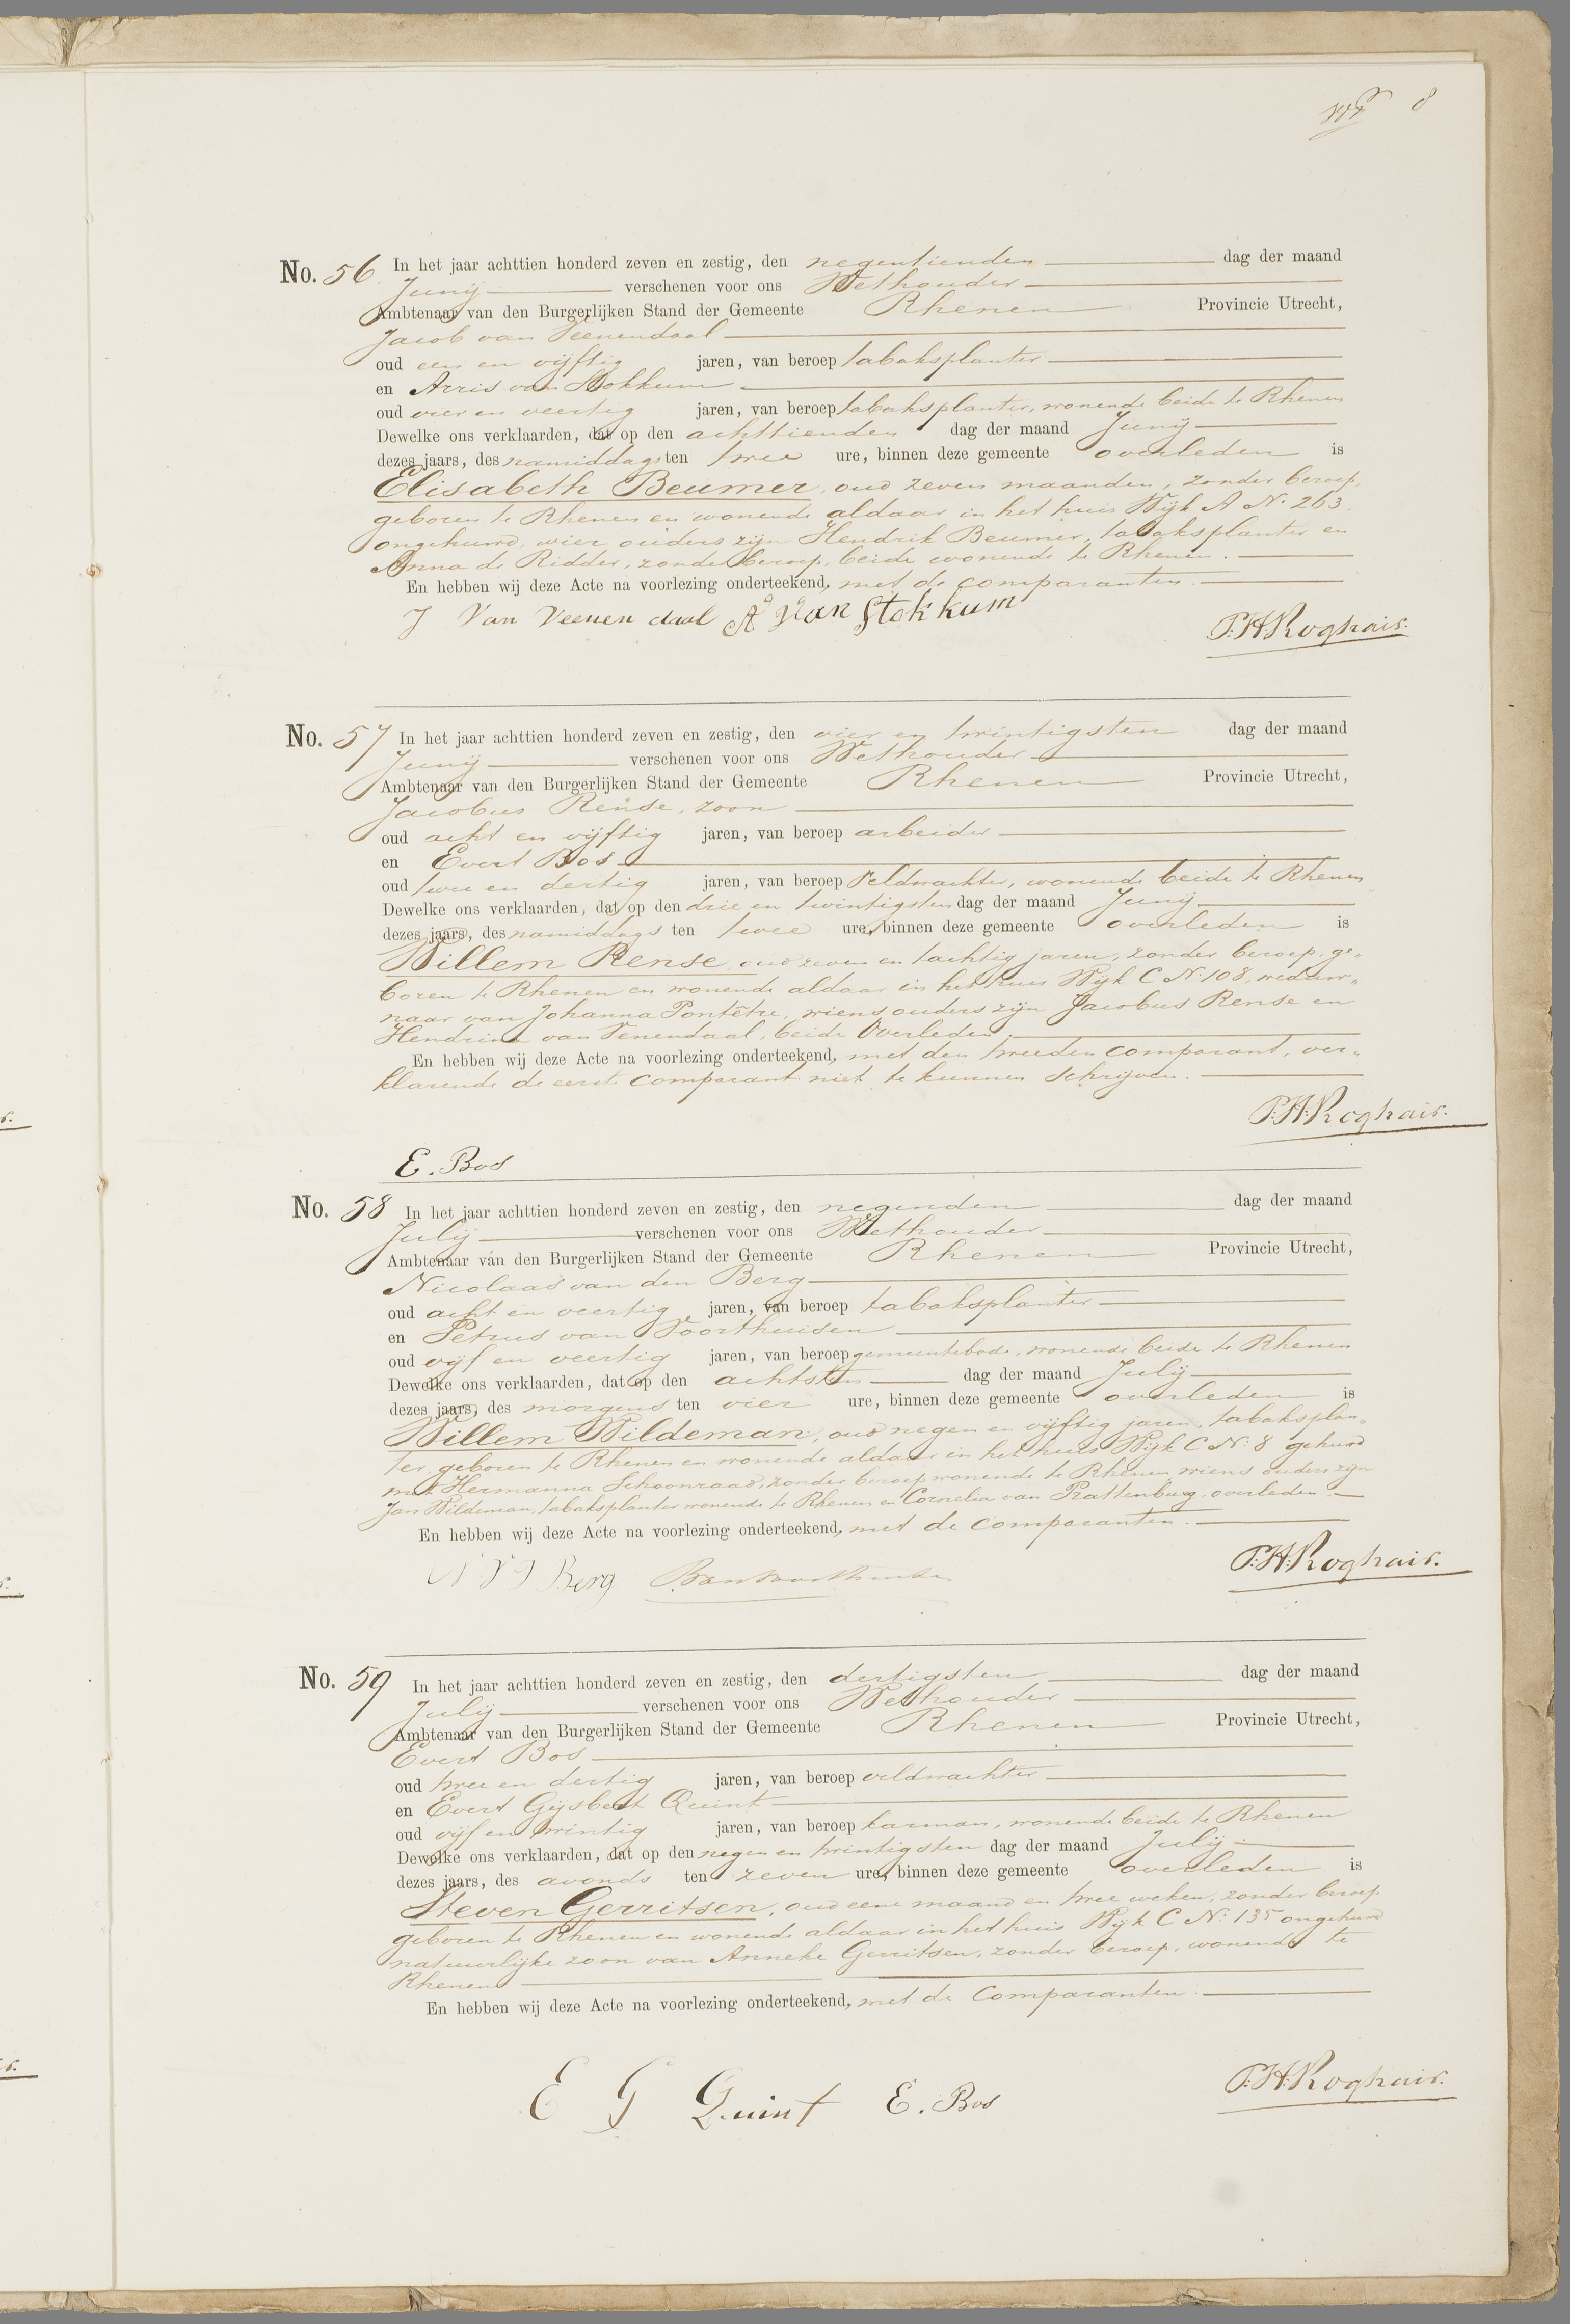 8
No. 56. In het jaar achttien honderd zeven en zestig, den negentienden dag der maand
Junij verschenen voor ons Wethouder
Ambtenaar van den Burgerlijken Stand der Gemeente Rhenen Provincie Utrecht,
Jacob van Veenendaal
oud een en vijftig jaren, van beroep tabaksplanter
en Arris van Stokkum
oud vier en veertig jaren, van beroep tabaksplanter, wonende beide te Rhenen
Dewelke ons verklaarden, dat op den achttienden dag der maand Junij
dezes jaars, des namiddags ten twee ure, binnen deze gemeente overleden is
Elisabeth Beumer, oud zeven maanden, zonder beroep,
geboren te Rhenen en wonende aldaar in het huis Wijk A No. 263,
ongehuwd, wier ouders zijn Hendrik Beumer, tabaksplanter en
Anna de Ridder, zonder beroep, beide wonende te Rhenen.
En hebben wij deze Acte na voorlezing onderteekend, met de comparanten.
J Van Veenen daal A van Stokkum
P.H.Roghair.
No. 57 In het jaar achttien honderd zeven en zestig, den vier en twintigsten dag der maand
Junij verschenen voor ons Wethouder
Ambtenaar van den Burgerlijken Stand der Gemeente Rhenen Provincie Utrecht,
Jacobus Rense, zoon
oud acht en vijftig jaren, van beroep arbeider
en Evert Bos
oud twee en dertig jaren, van beroep Veldwachter, wonende beide te Rhenen
Dewelke ons verklaarden, dat op den drie en twintigsten dag der maand Junij
dezes jaars, des namiddags ten twee ure, binnen deze gemeente overleden is
Willem Rense, oud zeven en tachtig jaren, zonder beroep, ge-
boren te Rhenen en wonende aldaar in het huis Wijk C No. 108, weduw-
naar van Johanna Pontêtre, wiens ouders zijn Jacobus Rense en
Hendrina van Venendaal, beide Overleden.
En hebben wij deze Acte na voorlezing onderteekend, met den tweeden comparant, ver-
klarende de eerste comparant niet te kunnen schrijven.
P.H.Roghair.
E. Bos
No. 58 In het jaar achttien honderd zeven en zestig, den negenden dag der maand
Julij verschenen voor ons Wethouder
Ambtenaar van den Burgerlijken Stand der Gemeente Rhenen Provincie Utrecht,
Nicolaas van den Berg
oud acht en veertig jaren, van beroep tabaksplanter
en Petrus van Voorthuisen
oud vijf en veertig jaren, van beroep gemeentebode, wonende beide te Rhenen
Dewelke ons verklaarden, dat op den achtsten dag der maand Julij
dezes jaars, des morgens ten vier ure, binnen deze gemeente overleden is
Willem Wildeman, oud negen en vijftig jaren, tabaksplan-
ter, geboren te Rhenen en wonende aldaar in het huis Wijk C No. 8 gehuwd
met Hermanna Schoonraad, zonder beroep wonende te Rhenen wiens ouders zijn
Jan Wildeman, tabaksplanter wonende te Rhenen en Cornelia van Rattenburg, overleden.
En hebben wij deze Acte na voorlezing onderteekend, met de comparanten.
N V D Berg P. van Voorthuisen
P.H.Roghair.
No. 59 In het jaar achttien honderd zeven en zestig, den dertigsten dag der maand
Julij verschenen voor ons Wethouder
Ambtenaar van den Burgerlijken Stand der Gemeente Rhenen Provincie Utrecht,
Evert Bos
oud twee en dertig jaren, van beroep veldwachter
en Evert Gijsbert Quint
oud vijf en twintig jaren, van beroep karman, wonende beide te Rhenen
Dewelke ons verklaarden, dat op den negen en twintigsten dag der maand Julij
dezes jaars, des avonds ten zeven ure, binnen deze gemeente overleden is
Steven Gerritsen, oud eene maand en twee weken, zonder beroep
geboren te Rhenen en wonende aldaar in het huis Wijk C No. 135 ongehuwd
natuurlijke zoon van Anneke Gerritsen, zonder beroep, wonende te
Rhenen
En hebben wij deze Acte na voorlezing onderteekend, met de Comparanten.
E G Quint E. Bos
P.H.Roghair.